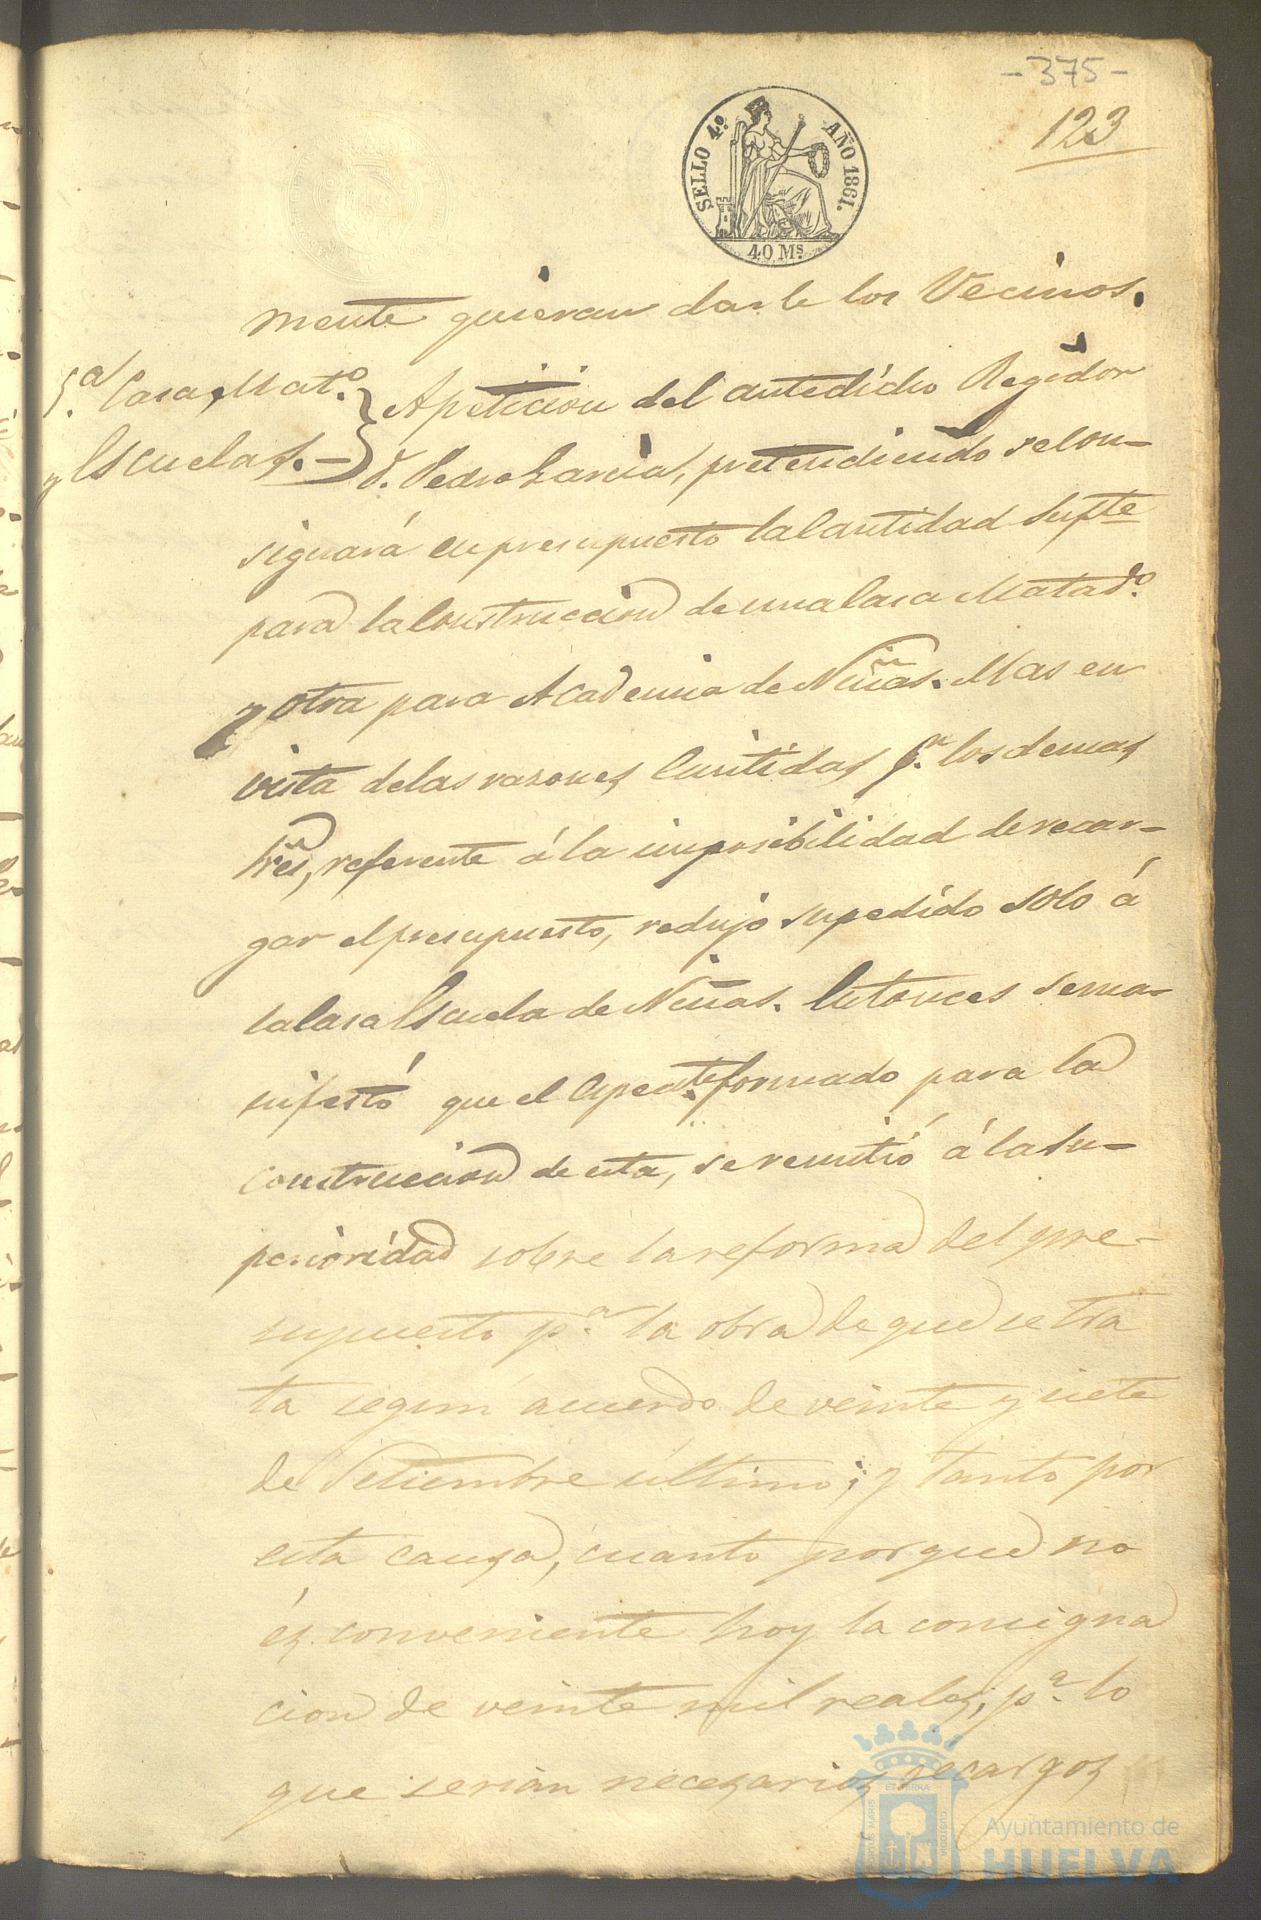 -375-
123
SELLO 4.º AÑO 1861.
40 Ms
mente quieran darle los Vecinos.
5.ª Casa Mat.º
y Escuelas.-
A peticion del antedicho Regidor
D. Pedro Garcia, pretendiendo se con-
signará en presupuesto la Cantidad sufte
para la Construccion de una Casa Matad.º
y otra para Academia de Niñas. Mas en
vista de las razones emitidas p.r los demas
Sres, referente á la imposibilidad de recar-
gar el presupuesto, redujo su pedido solo á
la Casa Escuela de Niñas. Entonces se ma-
nifestó que el Espedte. formado para la
construccion de esta, se remitió á la Su-
perioridad sobre la reforma del pre-
supuesto p.a la obra de que se tra
ta segun acuerdo de veinte y siete
de Setiembre último; y tanto por
esta causa, cuanto porque no
és conveniente hoy la consigna
cion de veinte mil reales, p.a lo
que serian necesarios recargos
ET TERRÆ
PORTUS MARIS
CUSTODIA
Ayuntamiento de
HUELVA